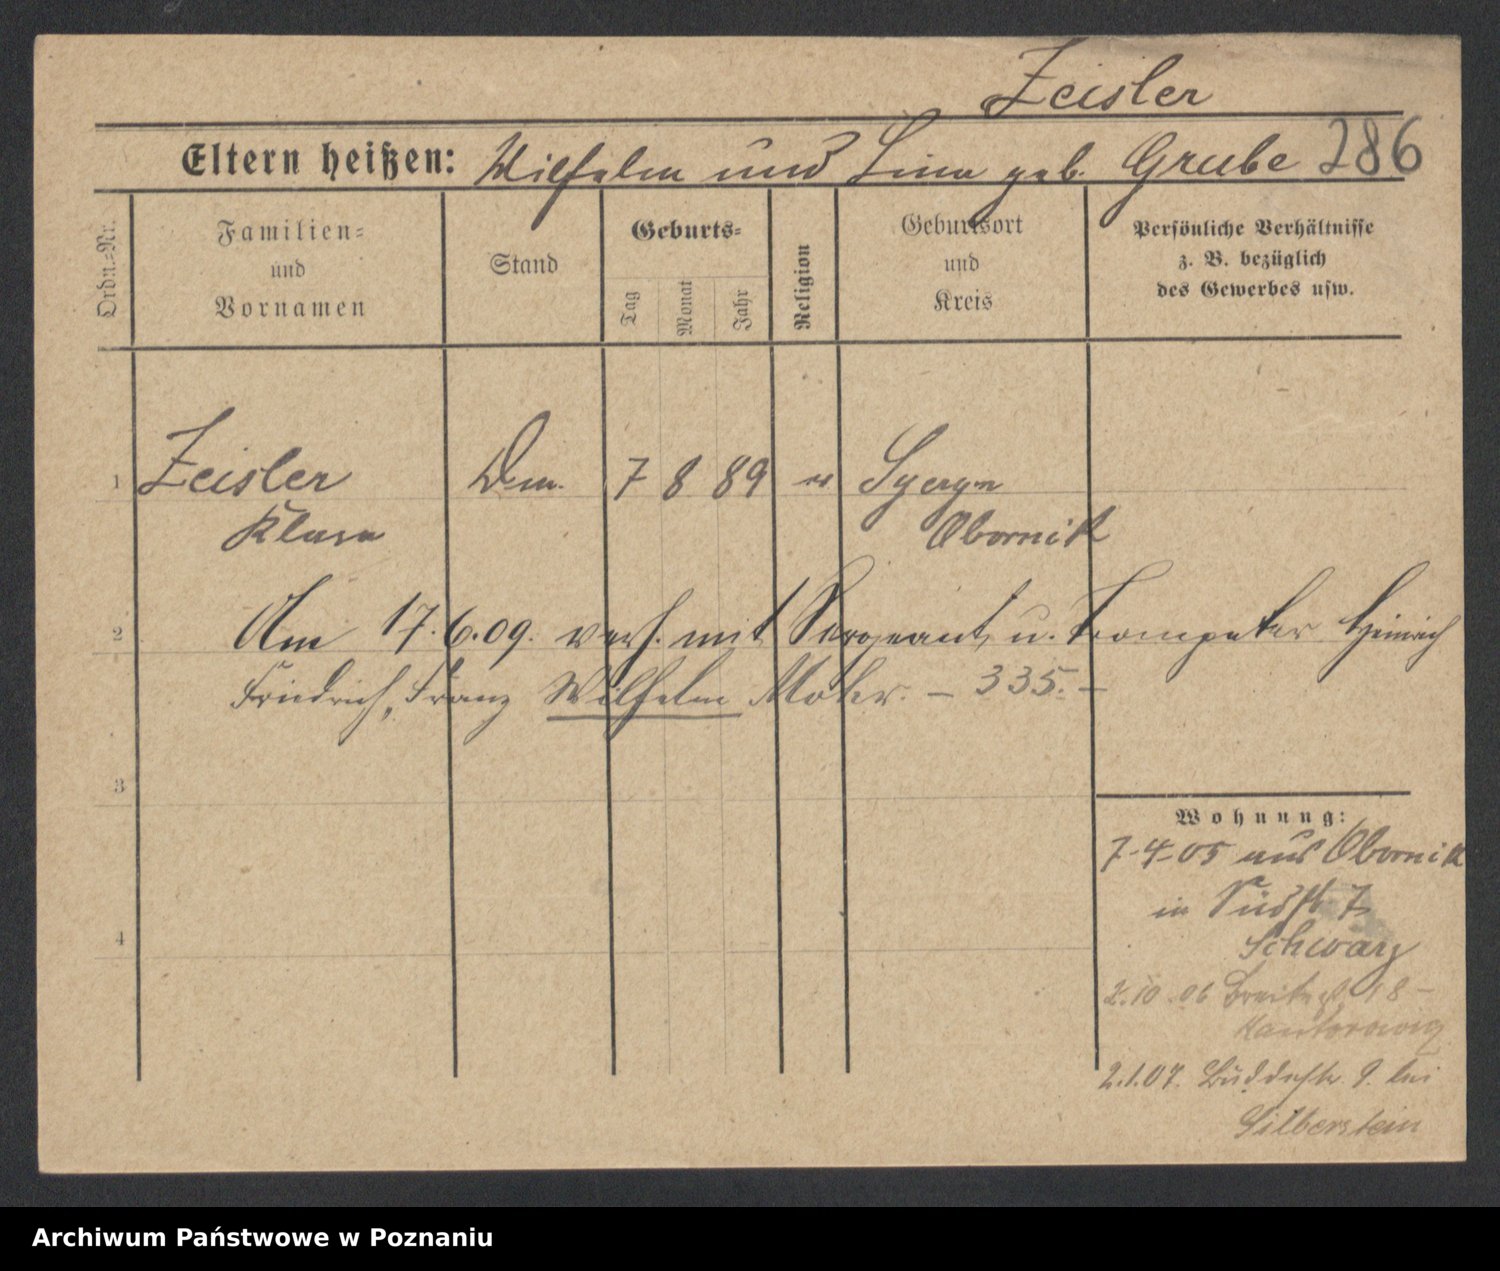 Zeisler
Eltern heißen: Wilhelm und Lina geb. Grube 286
Ordn.=Nr.
Familien=
und
Vornamen
Stand
Geburts=
Tag
Monat
Jahr
Religion
Geburtsort
und
Kreis
Persönliche Verhältnisse
z. B. bezüglich
des Gewerbes usw.
1 Zeisler 7 8 89
Klara Obornik
2 Am 17.6.09. verh. mit Sergeant u. Trompeter Heinrich
Friedrich, Franz Wilhelm Mohr. – 335. –
3
4
Wohnung:
7-4-05 aus Obornik
in Südstr 7
Schwarz
2.10.06 Breitestr. 18 –
Kantorowig
2.1.07. Buddestr. 9. bei
Silberstein
Archiwum Państwowe w Poznaniu